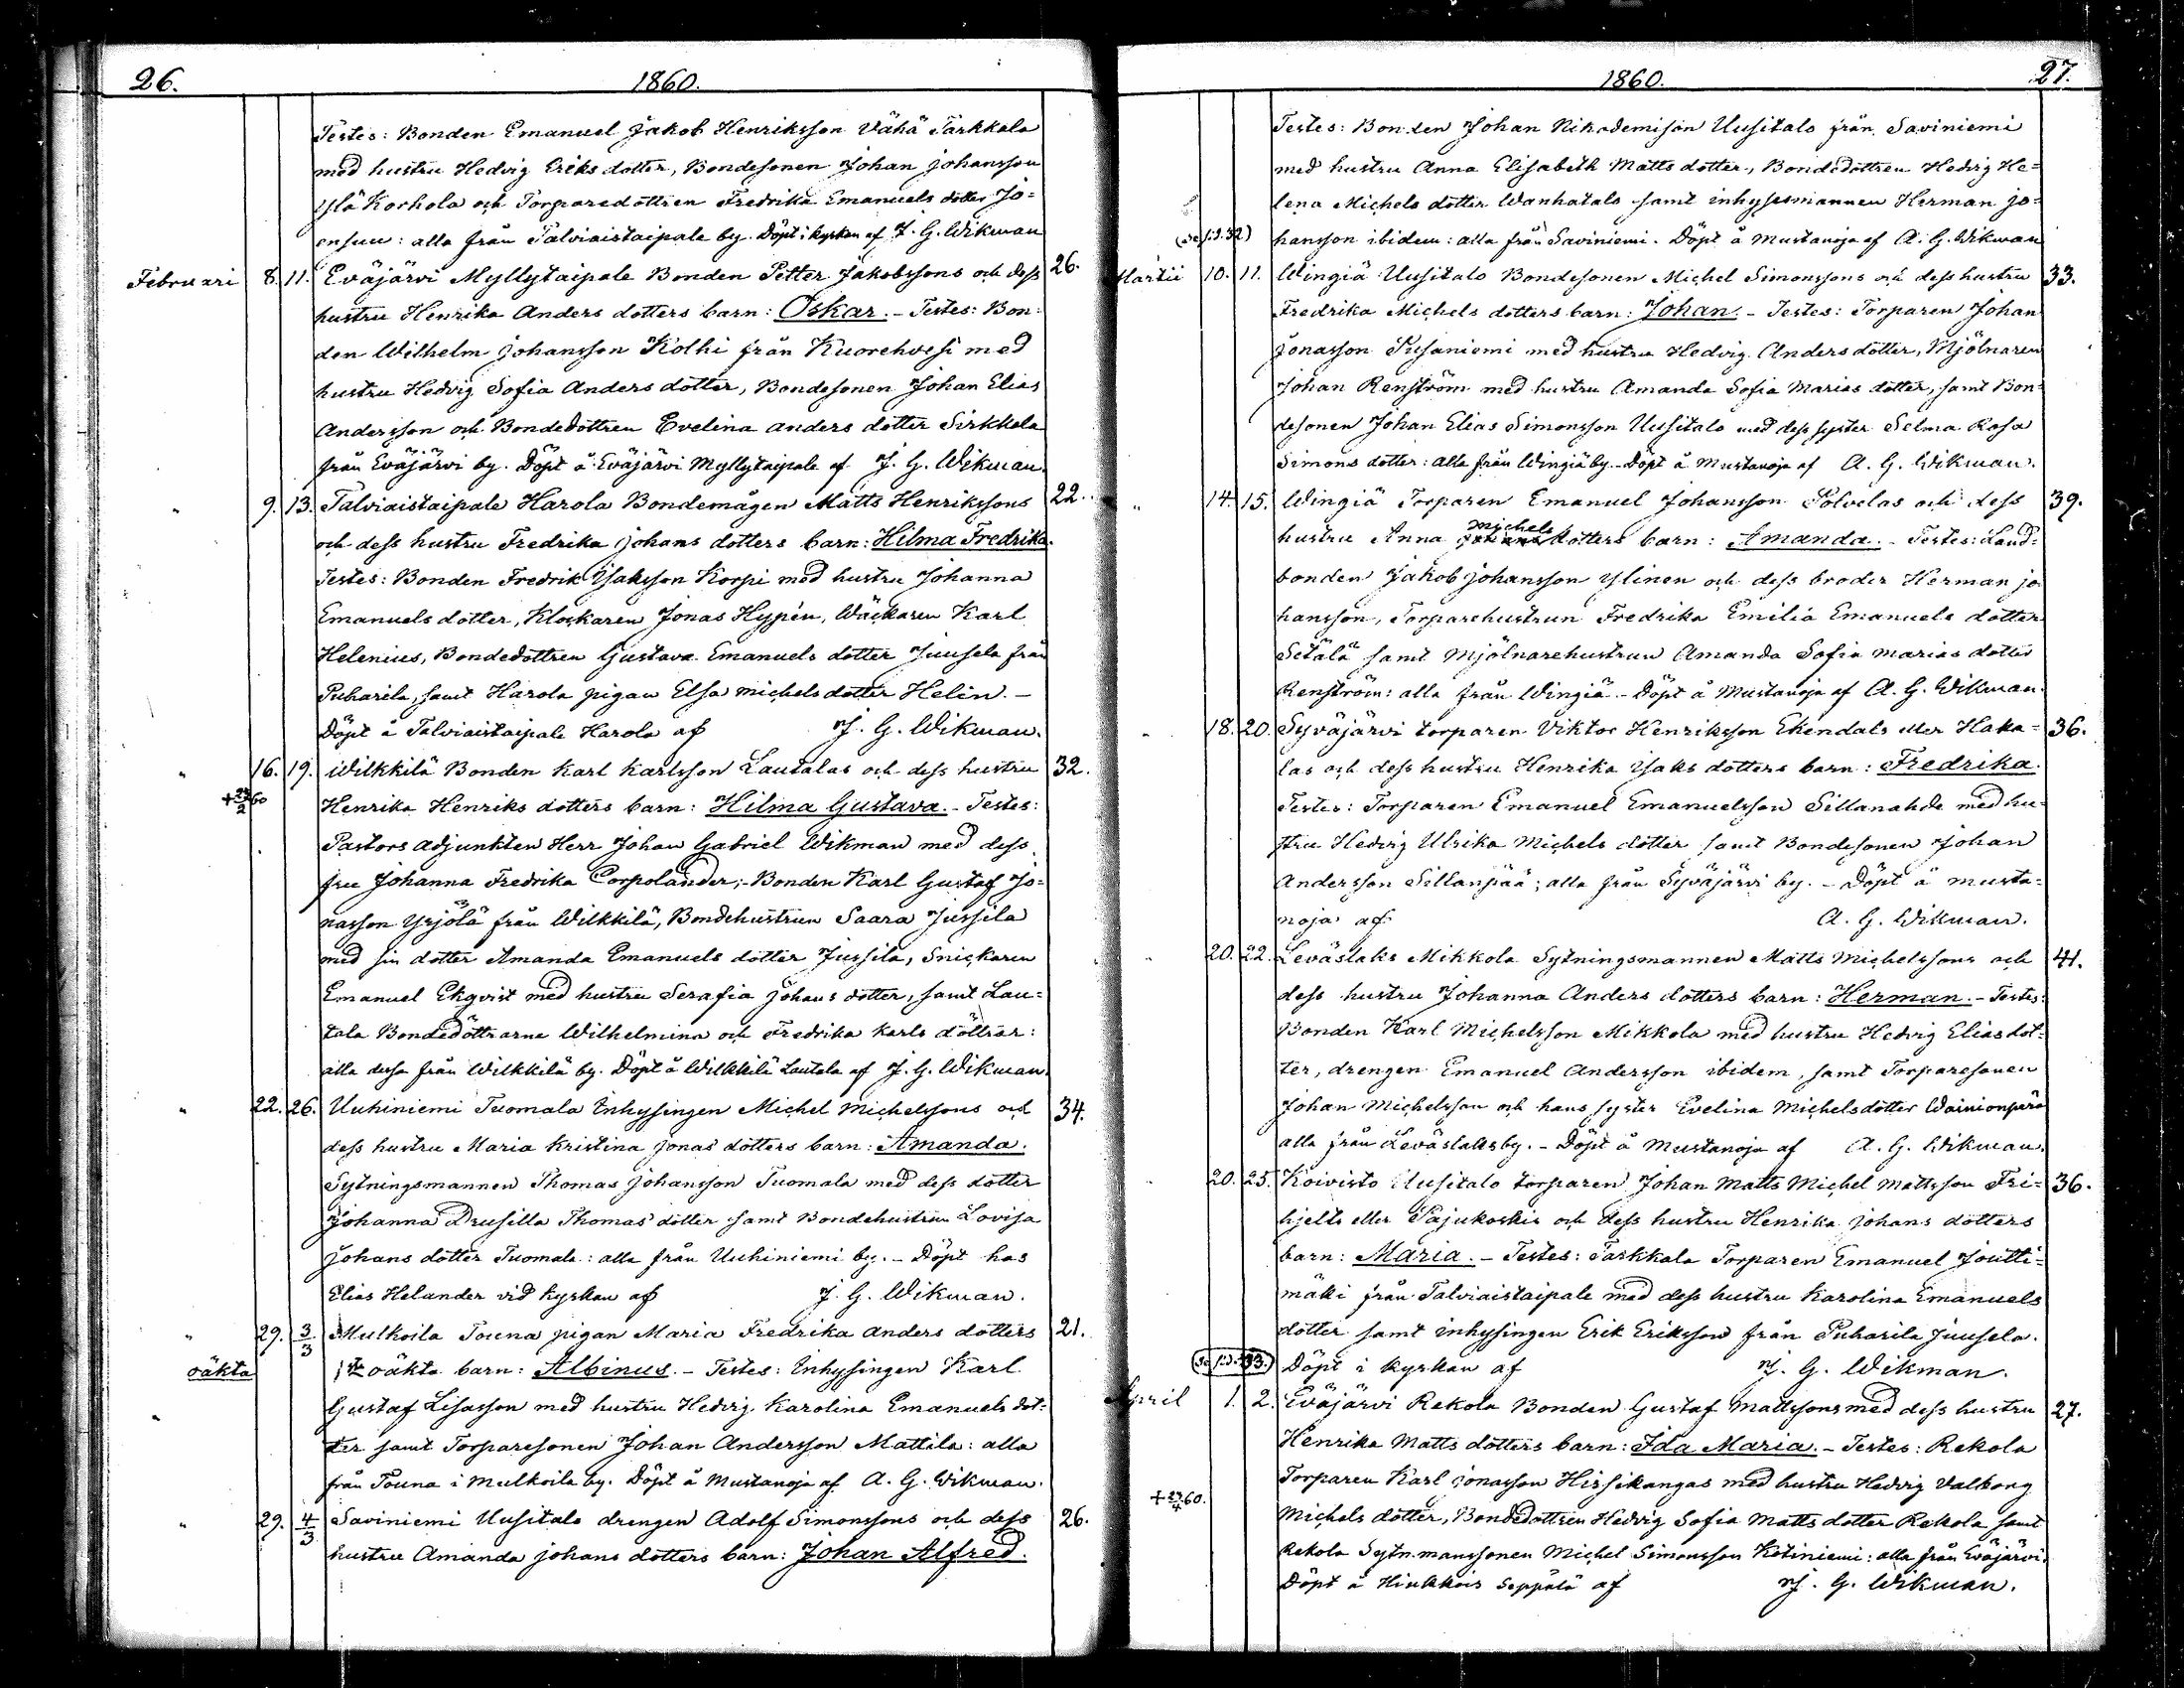 26.
1860.
Testes: Bonden Emanuel Jakob Henriksson Vähä Tarkkala
med hustru Hedvig Eriks dotter, Bondesonen Johan Johansson
Ylä Korhola och Torparedottren Fredrika Emanuels dotter Jo=
ensuu: alla från Talviaistaipale by. Döpt i kyrkan af J. G. Wikman
Februari 8. 11. Eväjärvi Myllytaipale Bonden Petter Jakobssons och dess 26.
hustru Henrika Anders dotters barn: Oskar. - Testes: Bon=
den Wilhelm Johansson Kolhi från Kuorehvesi med
hustru Hedvig Sofia Anders dotter, Bondesonen Johan Elias
Andersson och Bondedottren Evelina Anders dotter Sirkkala
från Eväjärvi by. Döpt å Eväjärvi Myllytaipale af J. G. Wikman.
" 9. 13. Talviaistaipale Harola Bondemågen Matts Henrikssons 22.
och dess hustru Fredrika Johans dotters barn: Hilma Fredrika.
Testes: Bonden Fredrik Isaksson Korpi med hustru Johanna
Emanuels dotter, Klockaren Jonas Hypén, Wäckaren Karl
Helenius, Bondedottren Gustava Emanuels dotter Juusela från
Puharila, samt Harola pigan Elsa Michels dotter Helin. -
Döpt å Talviaistaipale Harola af J. G. Wikman.
" 16. 19. Wilkkilä Bonden Karl Karlsson Lautalas och dess hustru 32.
+ 23/2 60 Henrika Henriks dotters barn: Hilma Gustava. - Testes:
Pastors adjunkten Herr Johan Gabriel Wikman med dess
fru Johanna Fredrika Corpolander; - Bonden Karl Gustaf Jo=
nasson Yrjölä från Wilkkilä, Bondehustrun Saara Jussila
med sin dotter Amanda Emanuels dotter Jussila, Snickaren
Emanuel Ekqvist med hustru Serafia Johans dotter, samt Lau=
tala Bondedöttrarne Wilhelmina och Fredrika Karls döttrar:
alla dessa från Wilkkilä by. Döpt å Wilkkilä Lautala af J. G. Wikman.
" 22. 26. Uuhiniemi Tuomala Inhysingen Michel Michelssons och 34.
dess hustru Maria Kristina Jonas dotters barn: Amanda.
Sytningsmannen Thomas Johansson Tuomala med dess dotter
Johanna Drusilla Thomas dotter samt Bondehustrun Lovisa
Johans dotter Tuomala: alla från Uuhiniemi by. - Döpt hos
Elias Helander vid kyrkan af J. G. Wikman.
" 29. 3/3 Mulkoila Touna pigan Maria Fredrika Anders dotters 21.
oäkta 1sta oäkta barn: Albinus. - Testes: Inhysingen Karl
Gustaf Lisasson med hustru Hedvig Karolina Emanuels dot=
ter samt Torparesonen Johan Andersson Mattila: alla
från Touna i Mulkoila by. Döpt å Mustanoja af A. G. Wikman.
" 29. 4/3 Saviniemi Uusitalo drengen Adolf Simonssons och dess 26.
hustru Amanda Johans dotters barn: Johan Alfred.
1860.
27.
Testes: Bonden Johan Nikodemison Uusitalo från Saviniemi
med hustru Anna Elisabeth Matts dotter, Bondedottren Hedvig He=
lena Michels dotter Wanhatalo samt inhysesmannen Herman Jo=
(se sid. 32) hansson ibidem: alla från Saviniemi. Döpt å Mustanoja af A. G. Wikman
Martii 10. 11. Wingiä Uusitalo Bondesonen Michel Simonssons och dess hustru 33.
Fredrika Michels dotters barn: Johan. - Testes: Torparen Johan
Jonasson Susaniemi med hustru Hedvig Anders dotter, Mjölnaren
Johan Renström med hustru Amanda Sofia Marias dotter, samt Bon=
desonen Johan Elias Simonsson Uusitalo med dess syster Selma Rosa
Simons dotter: alla från Wingiä by. - Döpt å Mustanoja af A. G. Wikman.
" 14. 15. Wingiä Torparen Emanuel Johansson Polvelas och dess 39.
hustru Anna Michels dotters barn: Amanda. - Testes: Land=
bonden Jakob Johansson Ylinen och dess broder Herman Jo
hansson, Torparehustrun Fredrika Emilia Emanuels dotter
Setälä samt Mjölnarehustrun Amanda Sofia Marias dotter
Renström: alla från Wingiä. - Döpt å Mustanoja af A. G. Wikman.
" 18. 20. Syväjärvi torparen Viktor Henriksson Ekendals eller Haka= 36.
las och dess hustru Henrika Isaks dotters barn: Fredrika.
Testes: Torparen Emanuel Emanuelsson Sillanahde med hu=
stru Hedvig Ulrika Michels dotter samt Bondesonen Johan
Andersson Sillanpää; alla från Syväjärvi by. - Döpt å Musta=
noja af A. G. Wikman.
" 20. 22. Leväslaks Mikkola Sytningsmannen Matts Michelssons och 41.
dess hustru Johanna Anders dotters barn: Herman. - Testes:
Bonden Karl Michelsson Mikkola med hustru Hedvig Elias dot=
ter, drengen Emanuel Andersson ibidem, samt Torparesonen
Johan Michelsson och hans syster Evelina Michelsdotter Wainionperä
alla från Leväslaks by. - Döpt å Mustanoja af A. G. Wikman.
" 20. 25. Koivisto Uusitalo torparen Johan Matts Michel Mattsson Fri= 36.
hjelts eller Pajukoskis och dess hustru Henrika Johans dotters
barn: Maria. - Testes: Tarkkala Torparen Emanuel Joutti=
mäki från Talviaistaipale med dess hustru Karolina Emanuels
dotter samt inhysingen Erik Eriksson från Puharila Juusela.
(se sid. 33.) Döpt i kyrkan af J. G. Wikman.
April 1. 2. Eväjärvi Rekola Bonden Gustaf Mattssons med dess hustru 27.
Henrika Matts dotters barn: Ida Maria. - Testes: Rekola
Torparen Karl Jonasson Hissikangas med hustru Hedvig Valborg
+ 23/4 60. Michels dotter, Bondedottren Hedvig Sofia Matts dotter Rekola samt
Rekola Sytn.manssonen Michel Simonsson Kotiniemi: alla från Eväjärvi.
Döpt å Hiukkois Seppälä af J. G. Wikman.